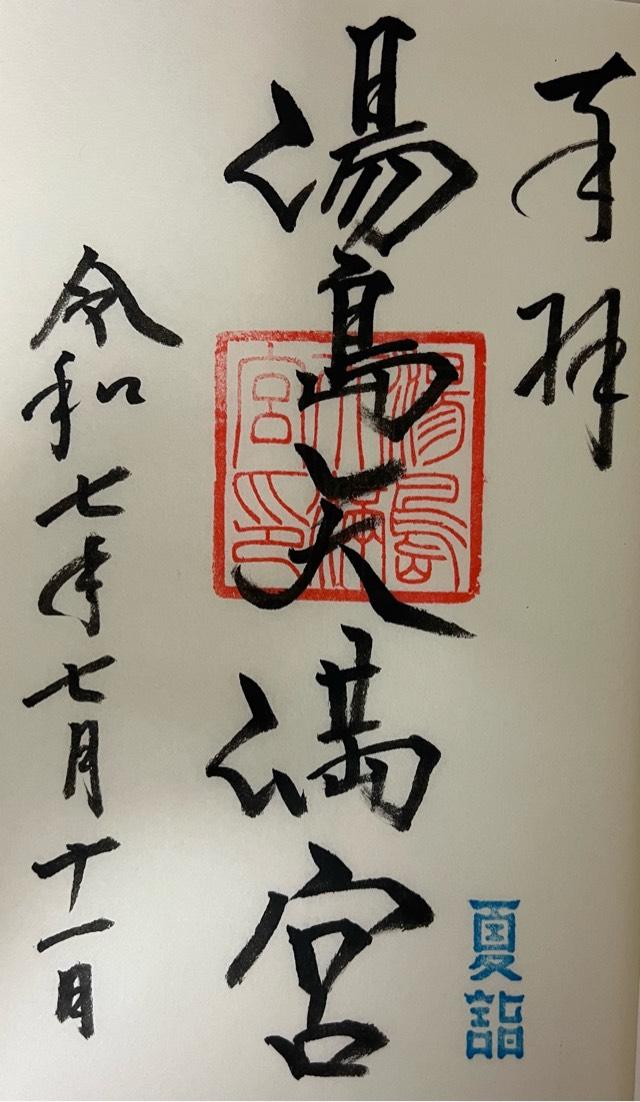 奉拝
湯島天満宮
湯島天満宮印
夏詣
令和七年七月十一日